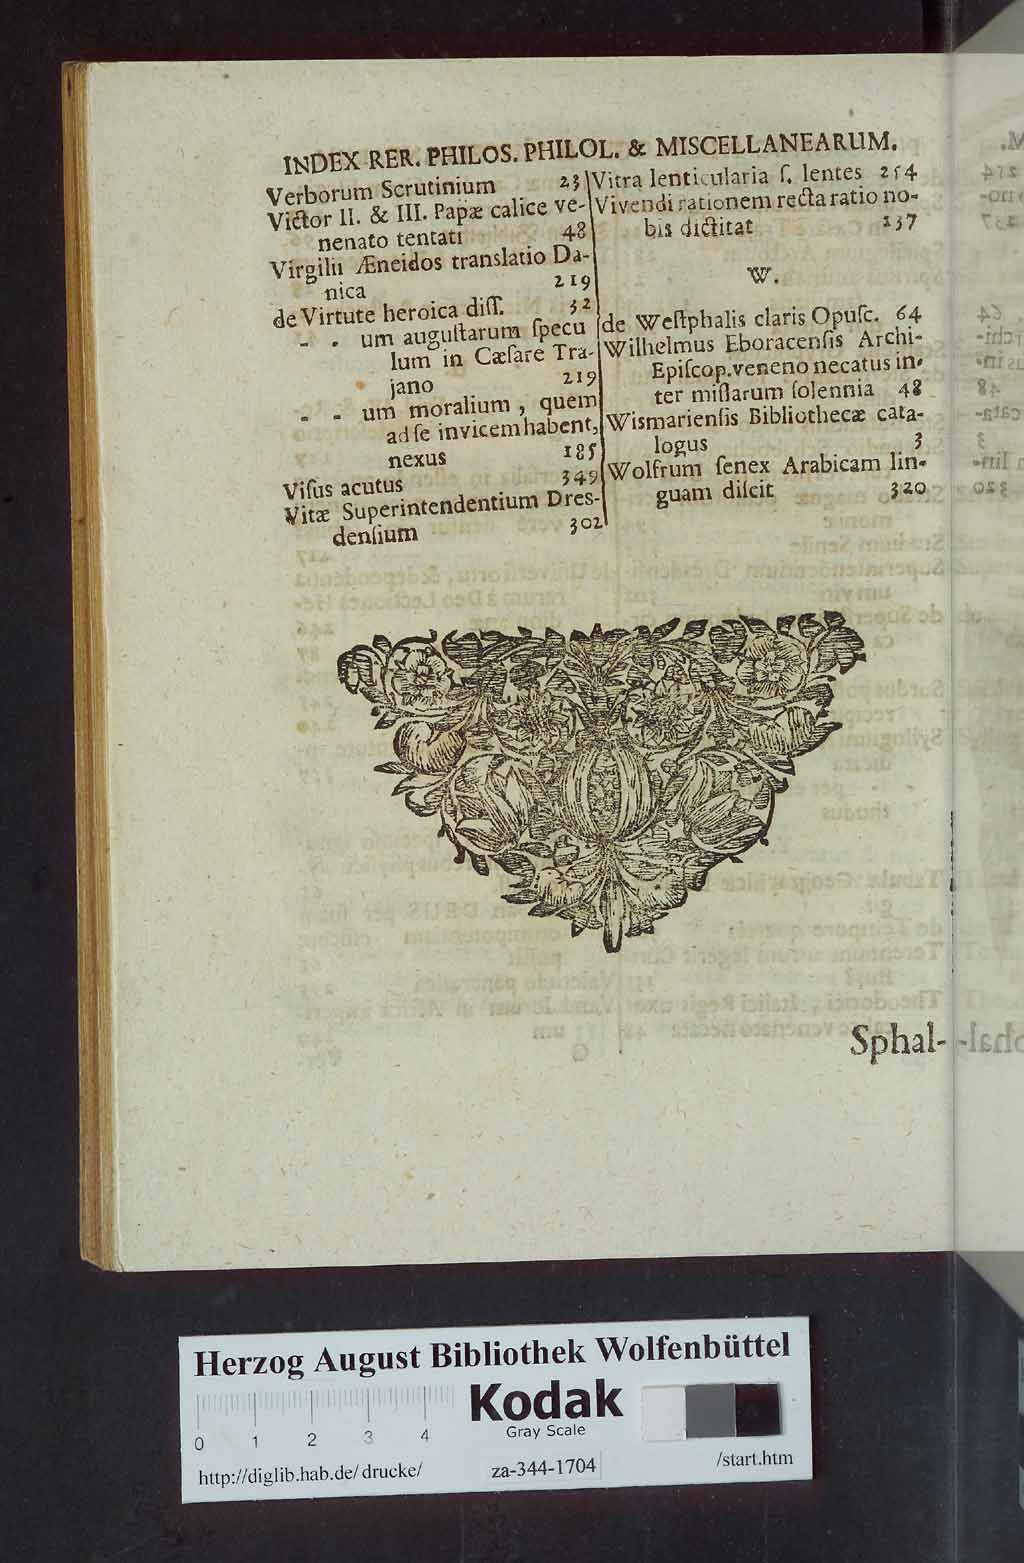 INDEX RER. PHILOS. PHILOL. & MISCELLANEARUM.
Verborum Scrutinium 23
Victor II. & III. Papæ calice ve-
nenato tentati 48
Virgilii Æneidos translatio Da-
nica 219
de Virtute heroica diſſ. 32
- - um auguſtarum ſpecu
lum in Cæſare Tra-
jano 219
- - um moralium, quem
ad ſe invicem habent,
nexus 185
Viſus acutus 349
Vitæ Superintendentium Dres-
denſium 302
Vitra lenticularia ſ. lentes 254
Vivendi rationem recta ratio no-
bis dictitat 237
W.
de Weſtphalis claris Opuſc. 64
Wilhelmus Eboracenſis Archi-
Epiſcop. veneno necatus in-
ter miſſarum ſolennia 48
Wismarienſis Bibliothecæ cata-
logus 3
Wolfrum ſenex Arabicam lin-
guam diſcit 320
Sphal-
Herzog August Bibliothek Wolfenbüttel
Kodak
Gray Scale
0 1 2 3 4
http://diglib.hab.de/drucke/ za-344-1704 /start.htm